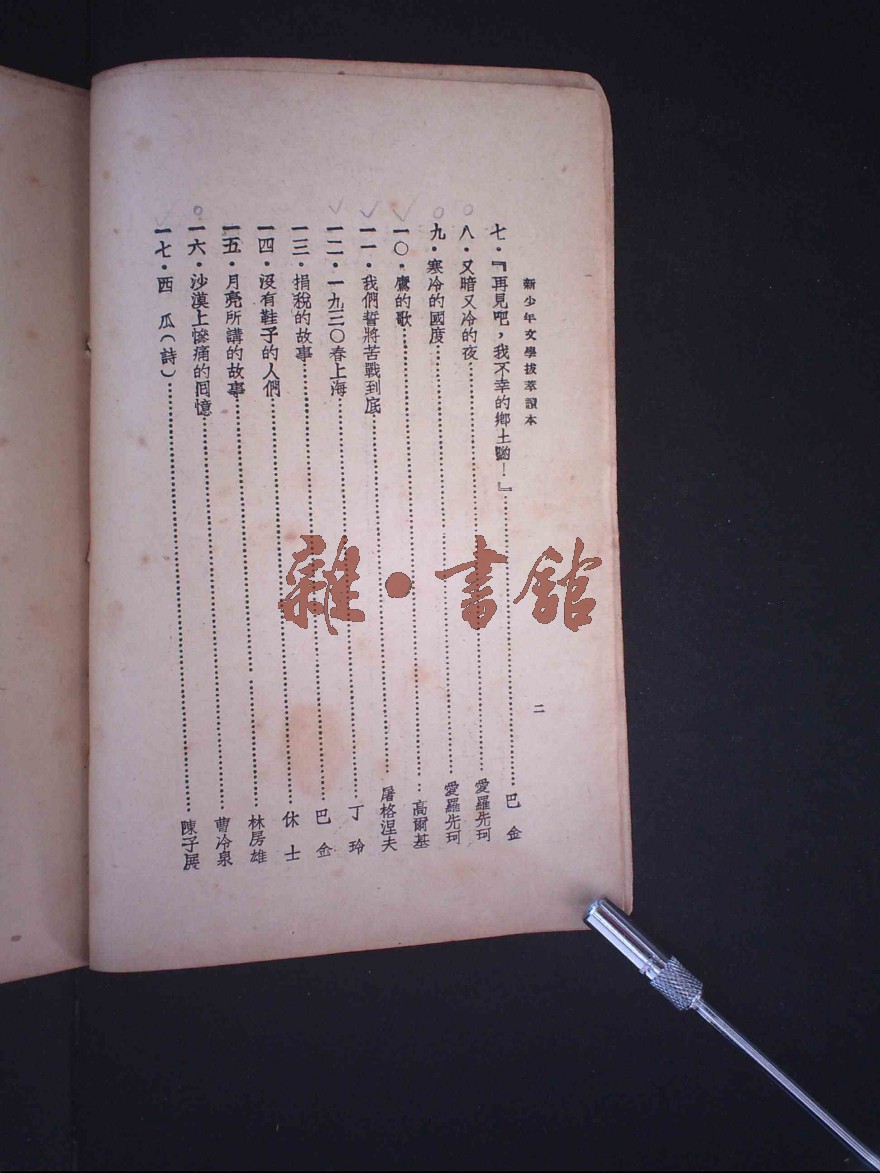 新少年文學拔萃讀本
二
七．『再見吧，我不幸的鄉土喲！』……巴金
八．又暗又冷的夜……愛羅先珂
九．寒冷的國度……愛羅先珂
一〇．鷹的歌……高爾基
一一．我們誓將苦戰到底……屠格涅夫
一二．一九三〇春上海……丁玲
一三．捐稅的故事……巴金
一四．沒有鞋子的人們……休士
一五．月亮所講的故事……林房雄
一六．沙漠上慘痛的囘憶……曹冷泉
一七．西　瓜（詩）……陳子展
雜•書館